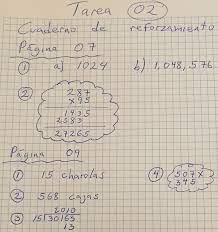 Tarea 02
Cuaderno de reforzamiento
Página 07
① a) 1024 b) 1,048,576
② 287
x 95
1435
2583
27265
Página 09
① 15 charolas
④ 507 x
345
② 568 cajas
2010
③ 15|30163
13